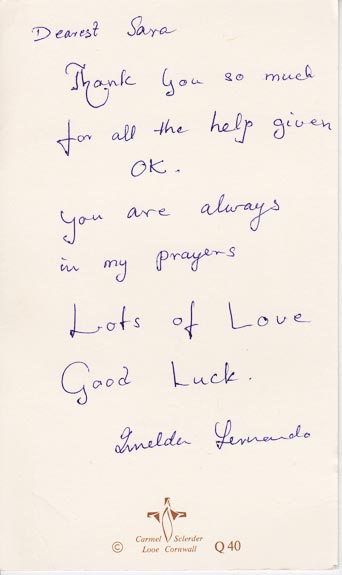 Dearest Sara
Thank you so much
for all the help given
OK.
you are always
in my prayers
Lots of Love
Good Luck.
Imelda Fernando
Carmel Sclerder
© Looe Cornwall Q40